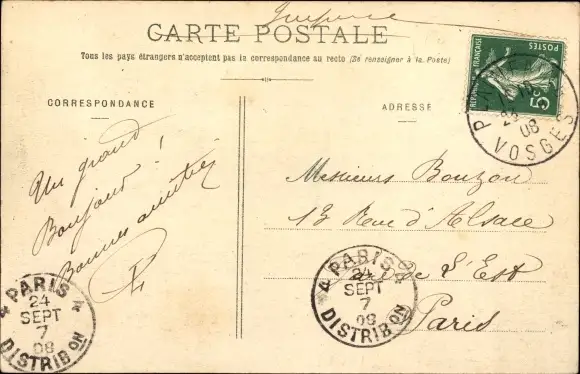 Imprimé
CARTE POSTALE
Tous les pays étrangers n'acceptent pas la correspondance au recto (Se renseigner à la Poste)
CORRESPONDANCE
Un grand
Bonjour !
Bonnes amitiés
ADRESSE
Messieurs Bouzon
13 Rue d'Alsace
Gare de l'Est
Paris
REPUBLIQUE FRANÇAISE
POSTES
5c
08
VOSGES
PARIS
24
SEPT
7
08
DISTRIBON
PARIS
24
SEPT
7
08
DISTRIBON